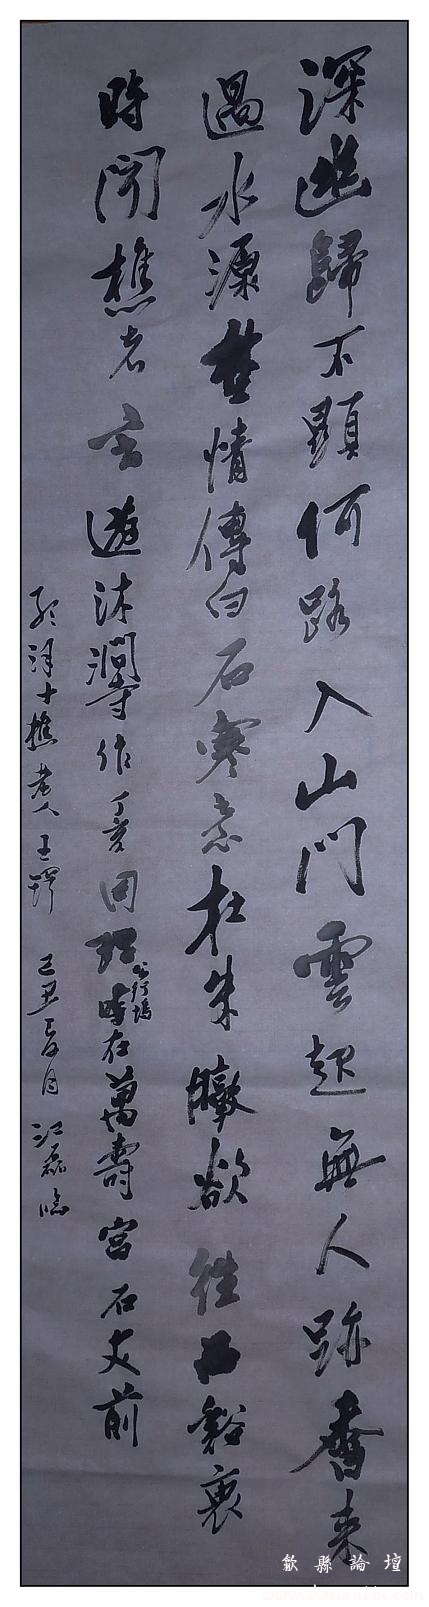 深幽歸不顯何路入山門雲起無人跡香來
過水源楚情傳白石寒意在朱曒欲往西谿裏
時聞樵老言遊沐澗寺作丁亥同
時在萬壽宮石丈前
十樵老人王鐸 己丑夏月 江磊臨
歙縣論壇